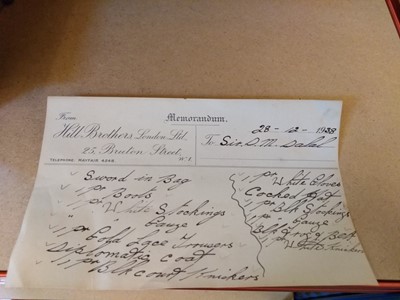 Memorandum.
From
Hill Brothers, London Ltd.
25, Bruton Street,
W.1.
TELEPHONE MAYFAIR
1938
To Sir. D. M. Dalal
Sword in Bag
1 pr Boots
1 pr White Stockings
" " Gauze "
1 pr Gold Lace Trousers
Diplomatic coat
1 pr Blk court Knickers
1 pr White Gloves
Cocked Hat
1 pr Blk Stockings
" " Gauze "
Blk Frog & Belt
1 pr White Knickers